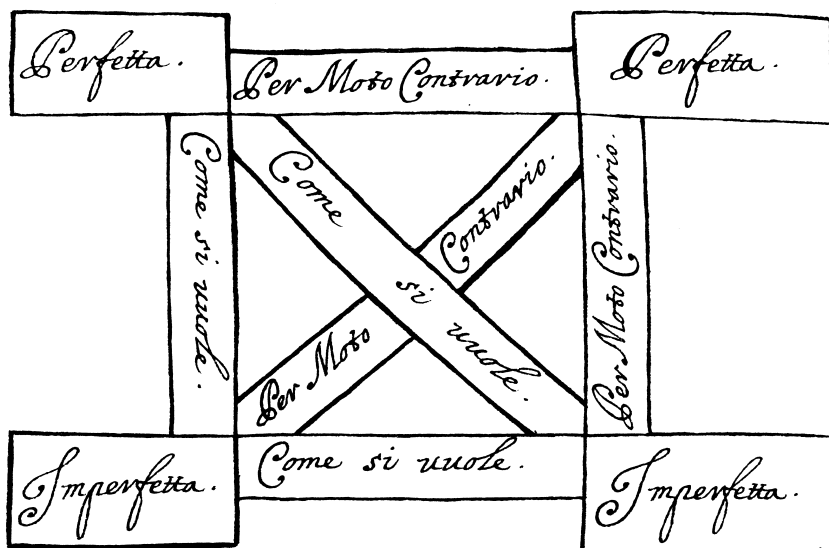 Perfetta.
Per Moto Contrario.
Perfetta.
Come si vuole.
Come si vuole.
Per Moto Contrario.
Per Moto Contrario.
Imperfetta.
Come si vuole.
Imperfetta.